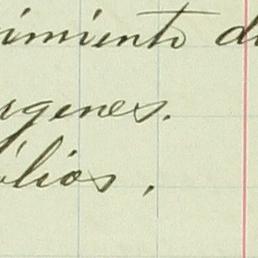 imiento d
genes.
lios,